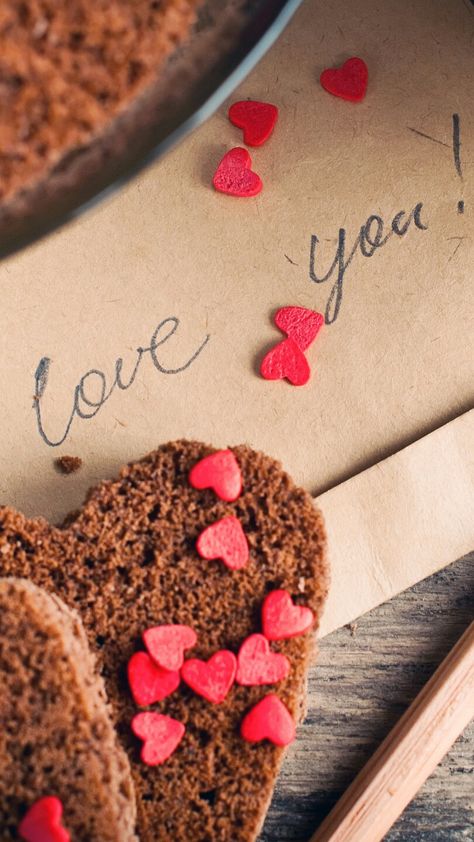 Love you!